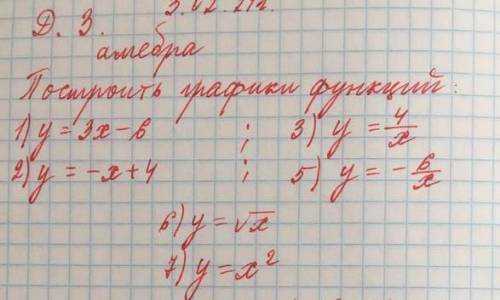 Д. З.
алгебра
Построить графики функций:
1) y = 3x - 6 ; 3) y = 4/x
2) y = -x + 4 ; 5) y = - 6/x
6) y = √x
7) y = x²